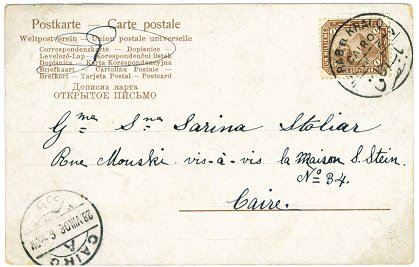 Postkarte — Carte postale
Weltpostverein — Union postale universelle
Correspondenzkarte — Dopisnice
Levelező-Lap — Korespondenční lístek
Dopisnica — Karta Korespondencyjna
Brefkaart — Cartolina Postale
Brefkort — Tarjeta Postal — Postcard
Дописна карта
ОТКРЫТОЕ ПИСЬМО
BAB EL
CAIRO
Gma Sna Sarina Stoliar
Rue Mouski vis-à-vis la Maison S. Stein.
No 34.
Caire.
28.VIII.06.6
CAIRO
A